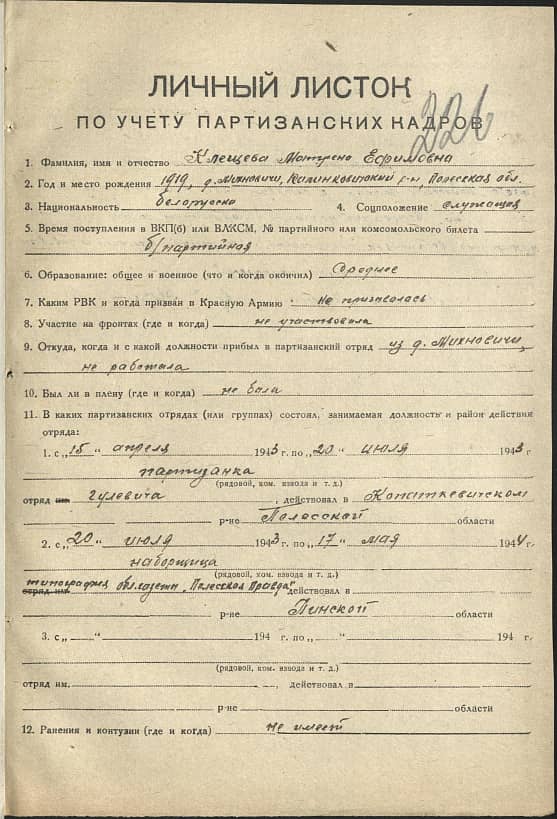 226
ЛИЧНЫЙ ЛИСТОК
ПО УЧЕТУ ПАРТИЗАНСКИХ КАДРОВ
1. Фамилия, имя и отчество Клещева Матрена Ефимовна
2. Год и место рождения 1919, д. Михновичи, Калинковичский р-н, Полесская обл.
3. Национальность белоруска 4. Соцположение служащая
5. Время поступления в ВКП(б) или ВЛКСМ, № партийного или комсомольского билета
б/партийная
6. Образование: общее и военное (что и когда окончил) Среднее
7. Каким РВК и когда призван в Красную Армию не призывалась
8. Участие на фронтах (где и когда) не участвовала
9. Откуда, когда и с какой должности прибыл в партизанский отряд из д. Михновичи,
не работала
10. Был ли в плену (где и когда) не была
11. В каких партизанских отрядах (или группах) состоял, занимаемая должность и район действия
отряда:
1. с „15“ апреля 1943 г. по „20“ июля 1943 г.
партизанка
(рядовой, ком. взвода и т. д.)
отряд им. Гулевича, действовал в Копаткевичском
р-не Полесской области
2. с „20“ июля 1943 г. по „17“ мая 1944 г.
наборщица
(рядовой, ком. взвода и т. д.)
типография обл. газеты „Полесская Правда“
отряд им. действовал в
р-не Пинской области
3. с „ “ 194 г. по „ “ 194 г.
(рядовой, ком. взвода и т. д.)
отряд им. , действовал в
р-не области
12. Ранения и контузии (где и когда) не имеет